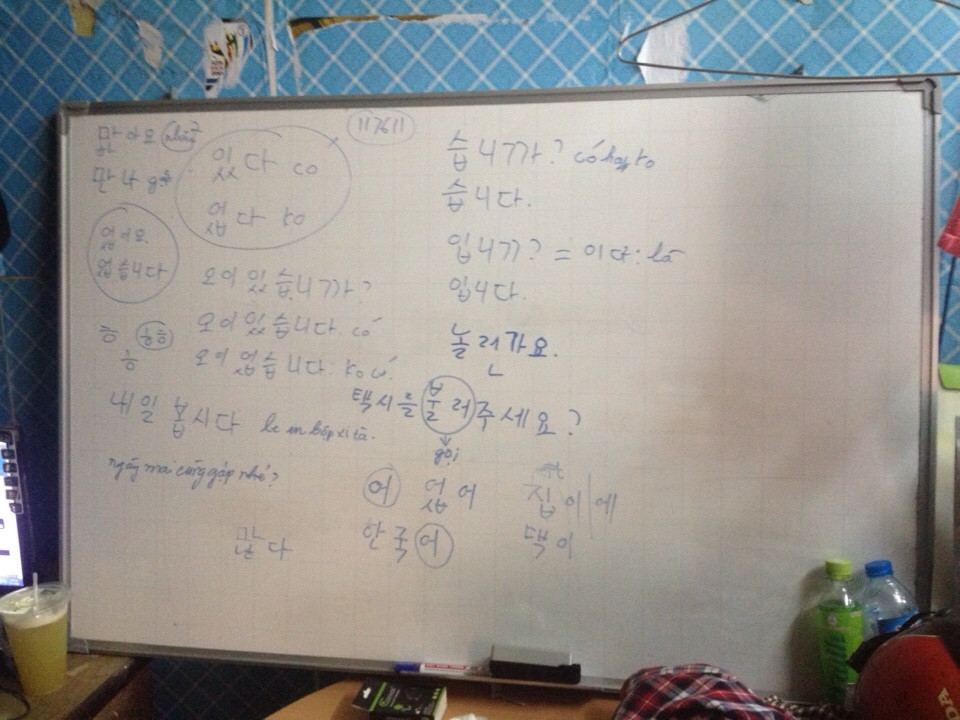 많아요 nhiều
만나 gặp
있다 co
없다 ko
117611
없어요
없습니다
오이 있습니까?
오이 있습니다. có
오이 없습니다. ko có
흥
내일 봅시다 le in bốp xi tà.
ngày mai cùng gặp nhé?
많다
습니까? có hay ko
습니다.
입니까? = 이다: là
입니다.
놀러가요.
ㄴ
택시를 불러주세요?
gọi
어 없어
한국어
집이 에
댁이